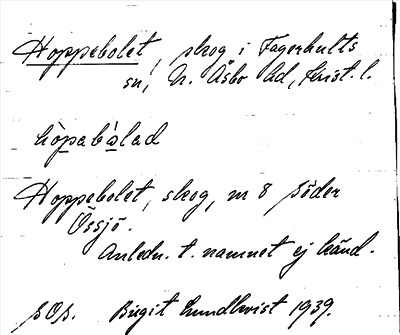 Hoppebolet, skog i Fagerhults
sn, N. Åsbo hd, Krist. l.
hòpabàlad
Hoppebolet, skog, nr 8 Söder
Össjö.
Anledn. t. namnet ej känd.
SOS. Birgit Lundkvist 1939.